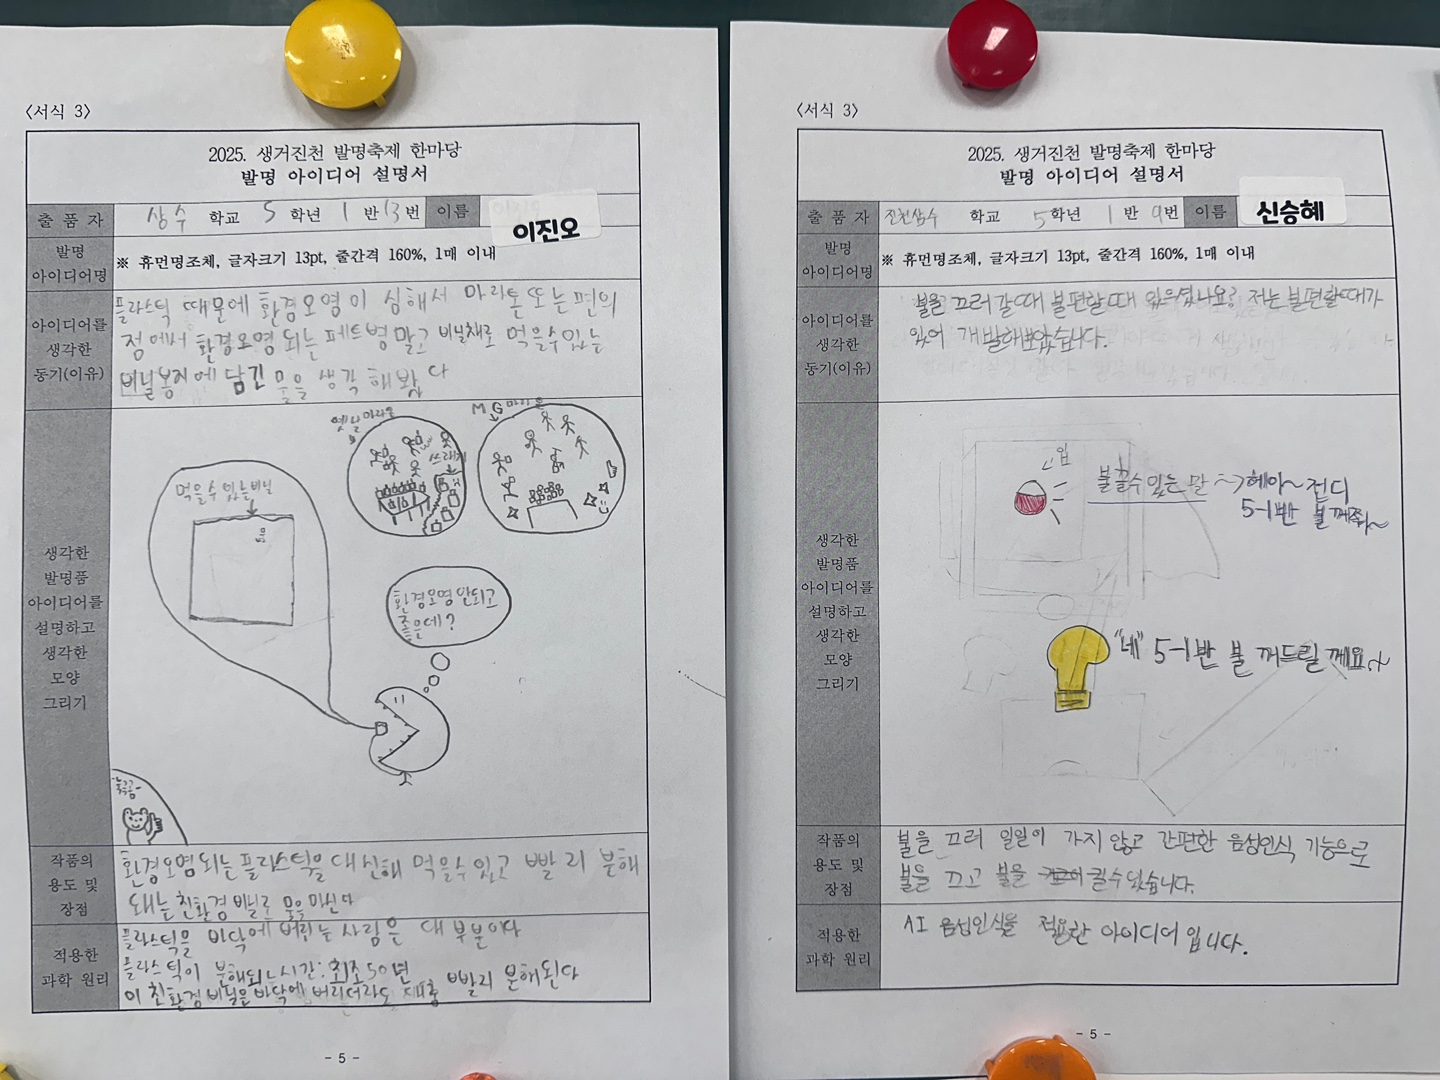 <서식 3>
2025. 생거진천 발명축제 한마당
발명 아이디어 설명서
출 품 자
상수 학교 5 학년 1 반 13번 이름 이진오
발명
아이디어명
※ 휴먼명조체, 글자크기 13pt, 줄간격 160%, 1매 이내
아이디어를
생각한
동기(이유)
플라스틱 때문에 환경오염이 심해서 마라톤 또는 편의
점에서 환경오염 되는 페트병 말고 비닐채로 먹을수있는
비닐봉지에 담긴 물을 생각 해봤다
생각한
발명품
아이디어를
설명하고
생각한
모양
그리기
옛날 마라톤
쓰레기
먹을수 있는 비닐
물
환경오염 안되고
좋은데?
작품의
용도 및
장점
환경오염되는 플라스틱을 대신해 먹을수있고 빨리 분해
돼는 친환경 비닐로 물을 마신다
적용한
과학 원리
플라스틱을 바닥에 버리는 사람은 대부분이다
플라스틱이 분해되는시간: 최조 50년
이 친환경 비닐은 바닥에 버리더라도 빨리 분해된다
- 5 -
<서식 3>
2025. 생거진천 발명축제 한마당
발명 아이디어 설명서
출 품 자
진천삼수 학교 5학년 1 반 9번 이름 신승혜
발명
아이디어명
※ 휴먼명조체, 글자크기 13pt, 줄간격 160%, 1매 이내
아이디어를
생각한
동기(이유)
불을 끄러갈때 불편할때 있으셨나요? 저는 불편할때가
있어 개발해보았습니다.
생각한
발명품
아이디어를
설명하고
생각한
모양
그리기
불끌수 있는 말 ~> 헤이~ 전디
5-1반 불 꺼줘~
"네" 5-1반 불 꺼드릴께요~
작품의
용도 및
장점
불을 끄러 일일이 가지 않고 간편한 음성인식 기능으로
불을 끄고 불을 킬수있습니다.
적용한
과학 원리
AI 음성인식을 적용한 아이디어 입니다.
- 5 -